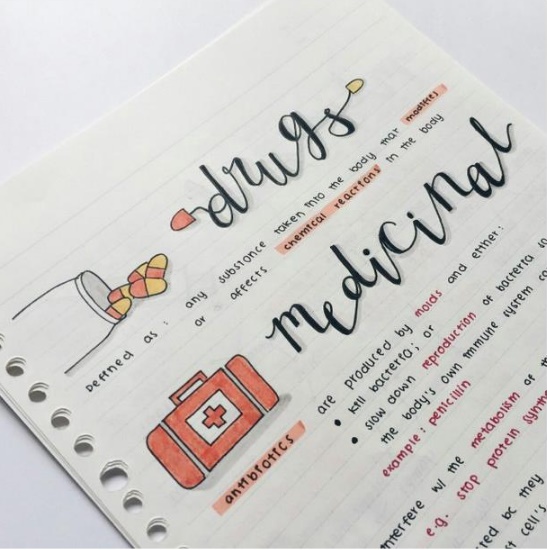 drugs
Defined as: any substance taken into the body that modifies
or affects chemical reactions in the body
medicinal
antibiotics
are produced by molds and either:
• kill bacteria; or
• slow down reproduction of bacteria so
the body's own immune system
example: penicillin
interfere w/ the metabolism of
e.g. stop protein
bc they
cell's